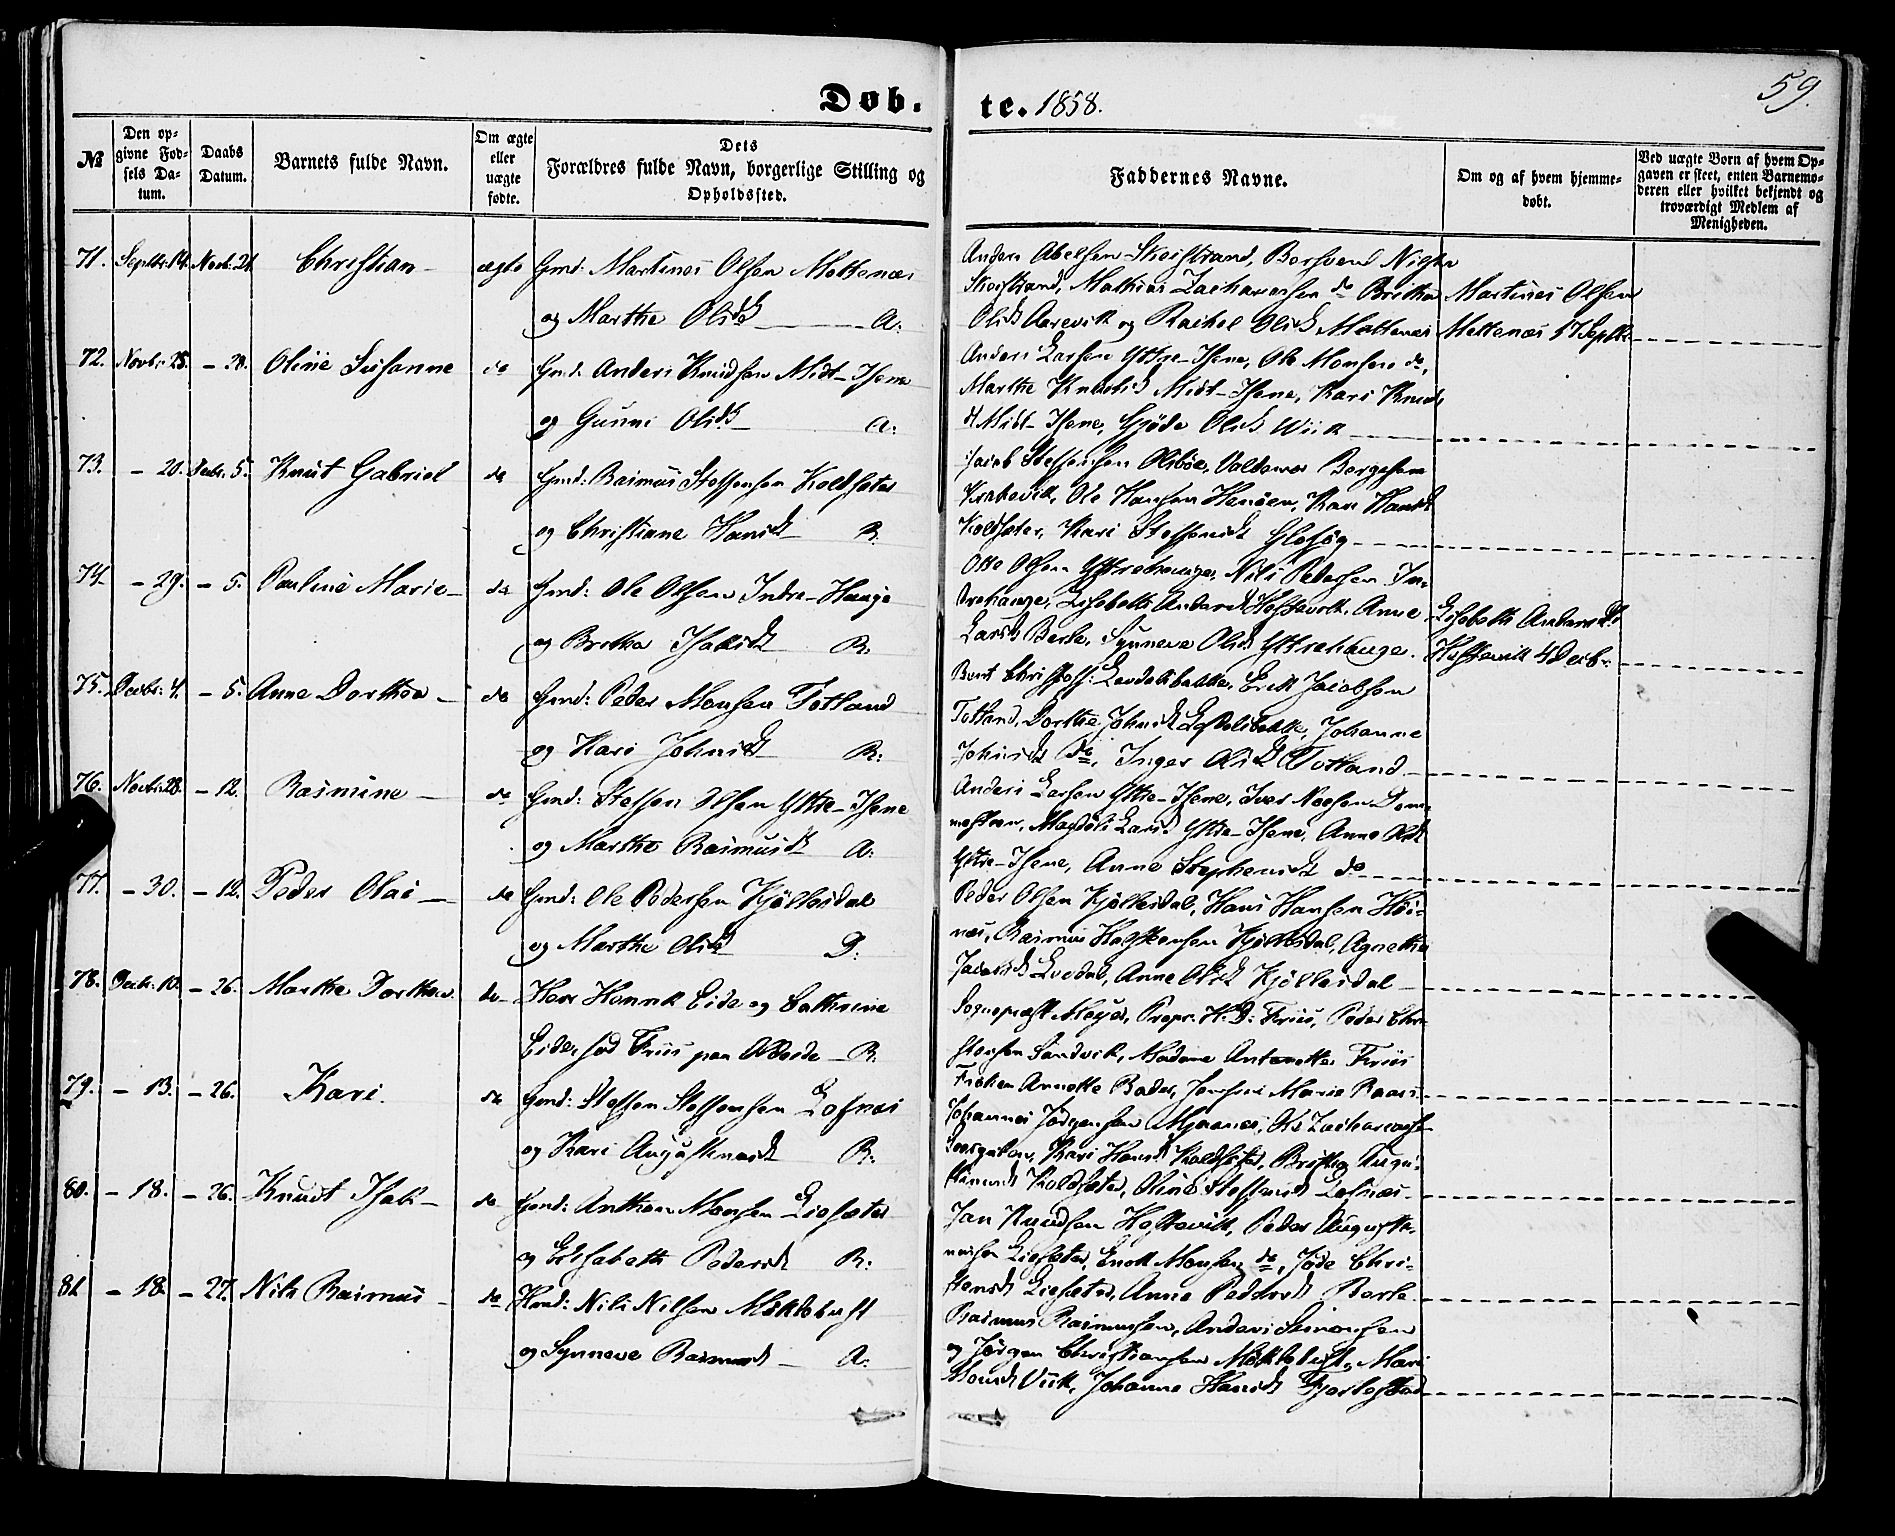 Døb.
te. 1858.
59.
№
Den op-
givne Fød-
sels Da-
tum.
Daabs
Datum.
Barnets fulde Navn.
Om ægte
eller
uægte
fødte.
Dets
Forældres fulde Navn, borgerlige Stilling og
Opholdssted.
Faddernes Navne.
Om og af hvem hjemme-
døbt.
Ved uægte Børn af hvem Op-
gaven er skeet, enten Barnemo-
deren eller hvilket bekjendt og
troværdigt Medlem af
Menigheden.
71. Septbr: 14. Novbr: 21. Christian ægte Gmd: Martinus Olsen Mettenæs
og Marthe Olsd A:
Anders Abelsen Skorstrand, Nils
Skorstrand, Mathias Zachariassen do Brithe
Olsd Aarevik og Rachel Olsd Mettenæs
Martines Olsen
Mettenæs 17 Septbr.
72. Novbr: 25. - 28. Oline Susanne do Gmd. Anders Knudsen Midt-Ihene
og Gunni Olsd A:
Anders Larsen Yttre-Ihene, Ole Monsen do,
Marthe Knudsd Midt-Ihene, Kari Knuds
d Midt-Ihene, Gjøde Olsd Wiik
73. - 20. Decbr. 5. Knut Gabriel do Gmd: Rasmus Steffensen Koldsæter
og Christiane Hansd R.
Jacob Steffensen, Valdemar Børgesen
Krakevik, Ole Hansen, Kari Hansd
Koldsæter, Kari Steffensd
74. - 29. - 5. Pauline Marie do Gmd: Ole Olsen Indre-Hauge
og Brithe Isaksd R.
Otto Olsen Yttrehauge, Nils Pedersen In-
drehauge, Lisabeth Andersd, Anne
Larsd Berle, Synneve Olsd Yttrehauge.
Lisabeth Andersd
4 Decbr.
75. Decbr: 4. - 5. Anne Dorthea do Gmd: Peder Monsen Totland
og Kari Johnsd R:
Bent, Erik Jacobsen
Totland, Dorthe Johnsd, Johanne
Johnsd do, Inger Olsd Totland
76. Novbr: 28. - 12. Rasmine do Gmd: Steffen Olsen Yttre-Ihene
og Marthe Rasmusd A:
Anders Larsen Yttre-Ihene, Iver
Magdeli Larsd Yttre-Ihene, Anne Olsd
Yttre-Ihene, Anne Stephensd do
77. - 30. - 12. Peder Olai do Gmd: Ole Pedersen Kjøllesdal
og Marthe Olsd D:
Peder Olsen Kjøllesdal, Hans Hansen Høi-
næs, Rasmus Kjøllesdal, Agnethe
Jacobsd, Anne Olsd Kjøllesdal
78. Decbr. 10. - 26. Marthe Dorthea do Herr Henrik Eide og Cathrine
Eide, fød Friis paa R:
Sognepræst Meyer, Propr. H. D: Friis, Peder Chri-
stensen Sandvik, Madame Antonette Friis
Frøken Annette Bader, Marie
79. - 13. - 26. Kari. do Gmd: Steffen Steffensen Lofnæs
og Kari Augustinusd R:
Johannes Jørgensen, Zachariass
Kari Hansd Koldsæter, Augu-
stinusd Koldsæter, Oline Steffensd Lofnæs.
80. - 18. - 26. Knudt Isak do Gmd: Anthon Monsen Liesæter
og Elisabeth Pedersd R:
Jan Knudsen, Peder Augusti-
nussen Liesæter, Enok Monsen do, Jøde Chri-
stensd Liesæter, Anne Pedersd Berle
81. - 18. - 27. Nils Rasmus do Hmd: Nils Nilsen Møkkebust
og Synneve Rasmusd A:
Rasmus Rasmussen, Anders Simonsen
og Jørgen Christiansen Møkkebust, Mari
Monsd Viik, Johanne Hansd